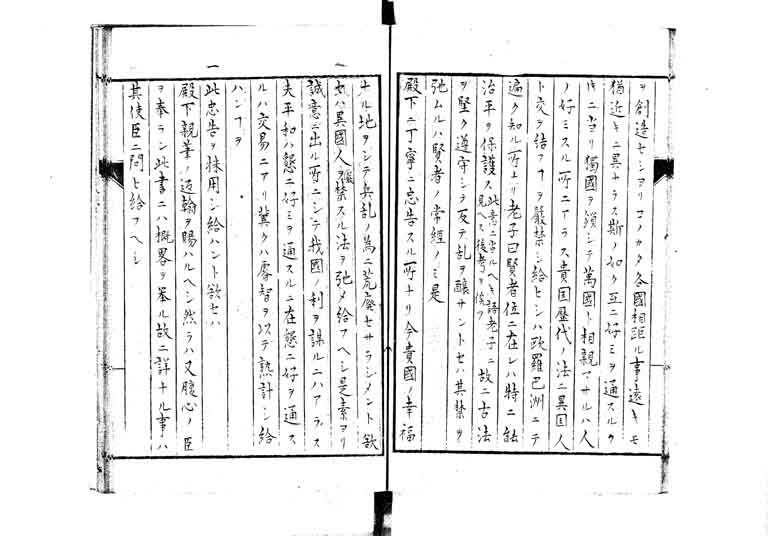 ヲ創造セシヨリコノカタ各國相距ル事遠キモ
猶近キニ異ナラス斯ノ如ク互ニ好ミヲ通スルノ
時ニ當リ獨國ヲ鎖シテ萬國ト相親マサルハ人
ノ好ミスル所ニアラス貴国歴代ノ法ニ異国人
ト交ヲ結フヿヲ嚴禁シ給ヒシハ欧羅巴洲ニテ
遍ク知ル所ナリ老子曰賢者位ニ在レハ特ニ能
治平ヲ保護ス
此意ニ當ルヘキ語老子ニ
見ヘス後考ヲ俟ツ
故ニ古法
ヲ堅ク遵守シテ反テ乱ヲ釀サントセハ其禁ヲ
弛ムルハ賢者ノ常經ノミ是
殿下ニ丁寧ニ忠告スル所ナリ今貴國ノ幸福
ナル地ヲシテ兵乱ノ為ニ荒廢セサラシメント欲
セハ異國人
嚴禁スル法ヲ弛メ給フヘシ是素ヨリ
誠意ニ出ル所ニシテ我國ノ利ヲ謀ルニハアラス
夫平和ハ懇ニ好ミヲ通スルニ在懇ニ好ヲ通ス
ルハ交易ニアリ冀クハ叡智ヲ以テ熟計シ給
ハンヿヲ
一
此忠告ヲ採用シ給ハント欲セハ
殿下親筆ノ返翰ヲ賜ハルヘシ然ラハ又腹心ノ臣
ヲ奉ラン此書ニハ概畧ヲ挙ル故ニ詳ナル事ハ
其使臣ニ問ヒ給フヘシ